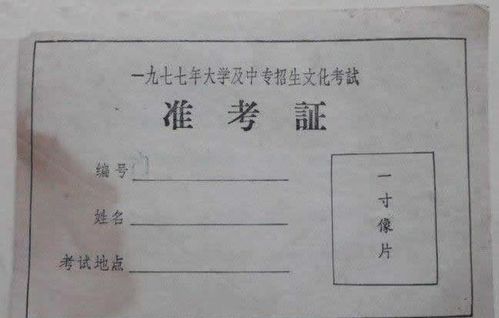 一九七七年大学及中专招生文化考試
准考証
编号
姓名
考试地点
一寸像片